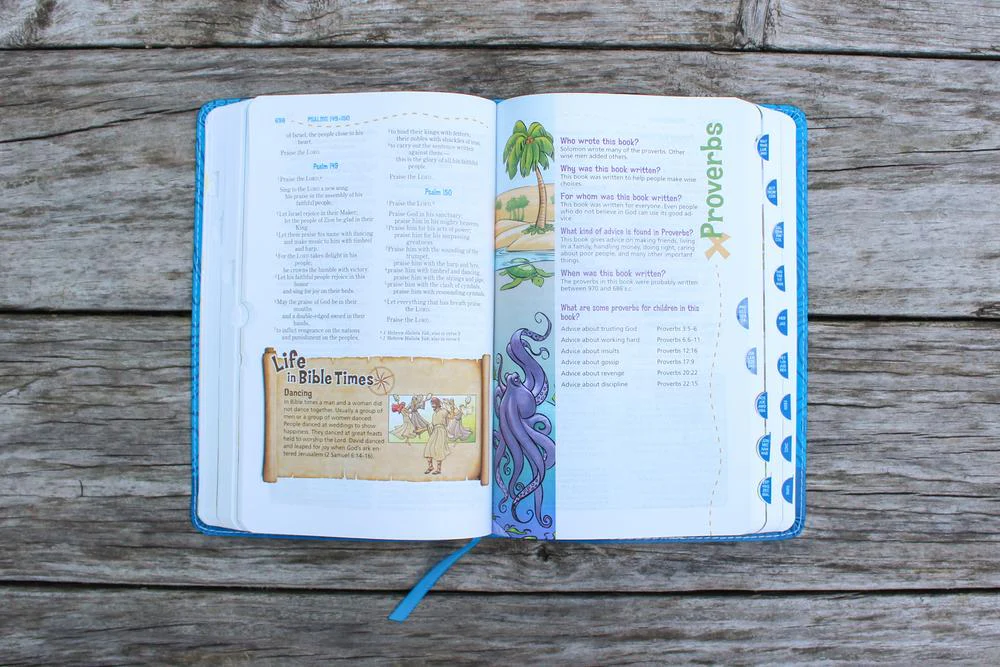 698 PSALMS 149–150
of Israel, the people close to his
heart.
Praise the LORD.
Psalm 149
1Praise the LORD.a
Sing to the LORD a new song,
his praise in the assembly of his
faithful people.
2Let Israel rejoice in their Maker;
let the people of Zion be glad in their
King.
3Let them praise his name with dancing
and make music to him with timbrel
and harp.
4For the LORD takes delight in his
people;
he crowns the humble with victory.
5Let his faithful people rejoice in this
honor
and sing for joy on their beds.
6May the praise of God be in their
mouths
and a double-edged sword in their
hands,
7to inflict vengeance on the nations
and punishment on the peoples,
8to bind their kings with fetters,
their nobles with shackles of iron,
9to carry out the sentence written
against them—
this is the glory of all his faithful
people.
Praise the LORD.
Psalm 150
1Praise the LORD.
Praise God in his sanctuary;
praise him in his mighty heavens.
2Praise him for his acts of power;
praise him for his surpassing
greatness.
3Praise him with the sounding of the
trumpet,
praise him with the harp and lyre,
4praise him with timbrel and dancing,
praise him with the strings and pipe,
5praise him with the clash of cymbals,
praise him with resounding cymbals.
6Let everything that has breath praise
the LORD.
Praise the LORD.
Hebrew Hallelu Yah; also in verse 9
Hebrew Hallelu Yah; also in verse 6
Life
in Bible Times
Dancing
In Bible times a man and a woman did
not dance together. Usually a group of
men or a group of women danced.
People danced at weddings to show
happiness. They danced at great feasts
held to worship the Lord. David danced
and leaped for joy when God's ark en-
tered Jerusalem (2 Samuel 6:14–16).
Proverbs
Who wrote this book?
Solomon wrote many of the proverbs. Other
wise men added others.
Why was this book written?
This book was written to help people make wise
choices.
For whom was this book written?
This book was written for everyone. Even people
who do not believe in God can use its good ad-
vice.
What kind of advice is found in Proverbs?
This book gives advice on making friends, living
in a family, handling money, doing right, caring
about poor people, and many other important
things.
When was this book written?
The proverbs in this book were probably written
between 970 and 686 B.C.
What are some proverbs for children in this
book?
Advice about trusting God Proverbs 3:5–6
Advice about working hard Proverbs 6:6–11
Advice about insults Proverbs 12:16
Advice about gossip Proverbs 17:9
Advice about revenge Proverbs 20:22
Advice about discipline Proverbs 22:15